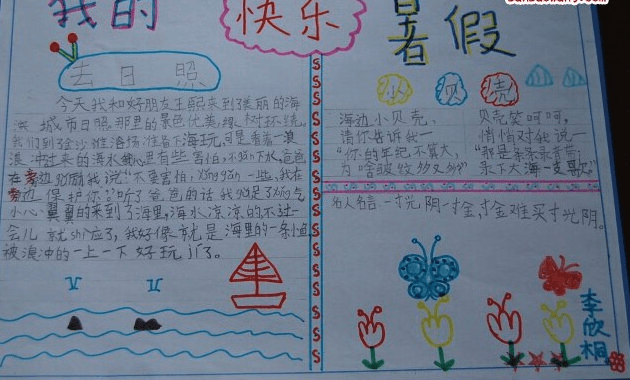 我的
快乐
暑假
去日照
今天我和好朋友王熙来到了美丽的海
滨城市日照,那里的景色优美,绿树环绕。
我们到金沙滩洗澡,准备下海玩,可是看着一浪
浪冲过来的海水我心里有些害怕,不敢下水,爸爸
在旁边鼓励我说:“不要害怕,勇敢一些,我在
旁边保护你。”听了爸爸的话我鼓足了勇气
小心翼翼的来到了海里,海水凉凉的不过一
会儿就shì应了,我好像就是海里的一条小鱼
被浪冲的一上一下好玩儿了。
小贝壳
海边小贝壳,
请你告诉我—
“你的年纪不算大,
为啥皱纹多又多?”
贝壳笑呵呵,
悄悄对我说—
“那是条条录音带,
录下大海一支歌。”
名人名言:一寸光阴一寸金,寸金难买寸光阴。
李欣桐